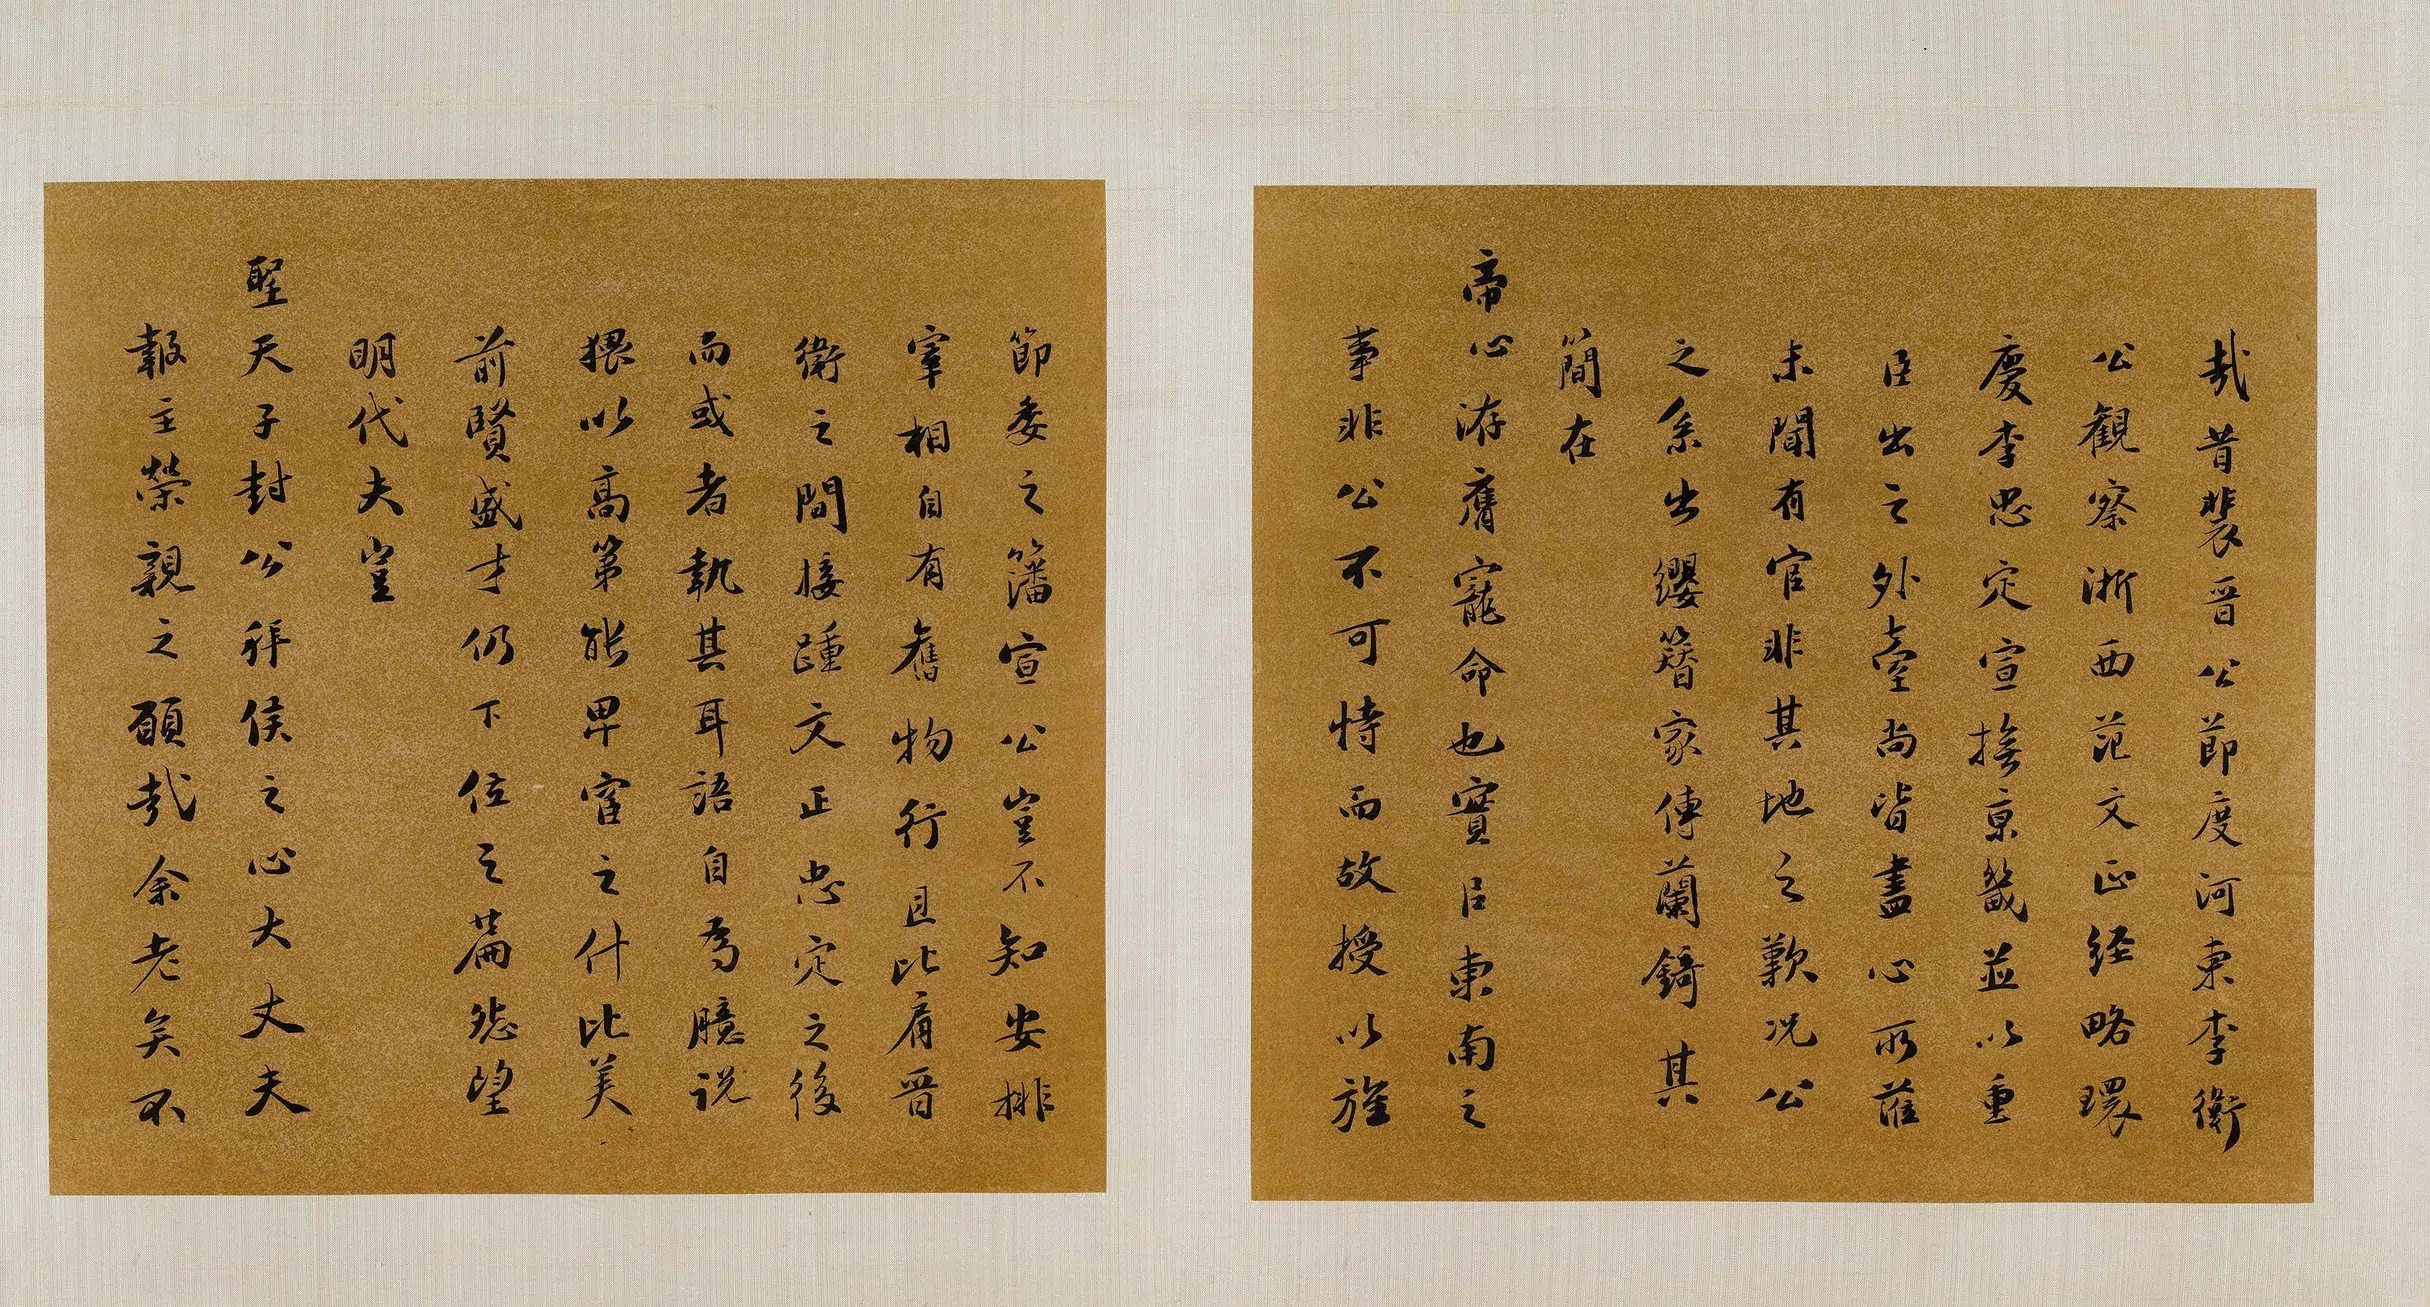 哉昔裴晋公節度河東李衛
公觀察浙西范文正經略環
慶李忠定宣撫京畿並以重
臣出之外臺尚皆盡心所蒞
未聞有官非其地之歎況公
之系出纓簪家傳蘭錡其
簡在
帝心洊膺寵命也實臣東南之
事非公不可恃而故授以旌
節委之籓宣公豈不知安排
宰相自有舊物行且比肩晋
衛之間接踵文正忠定之後
而或者執其耳語自為臆説
猥以高第能卑官之什比美
前賢盛才仍下位之篇怨望
明代夫豈
聖天子封公拜侯之心大丈夫
報主榮親之願哉余老矣不